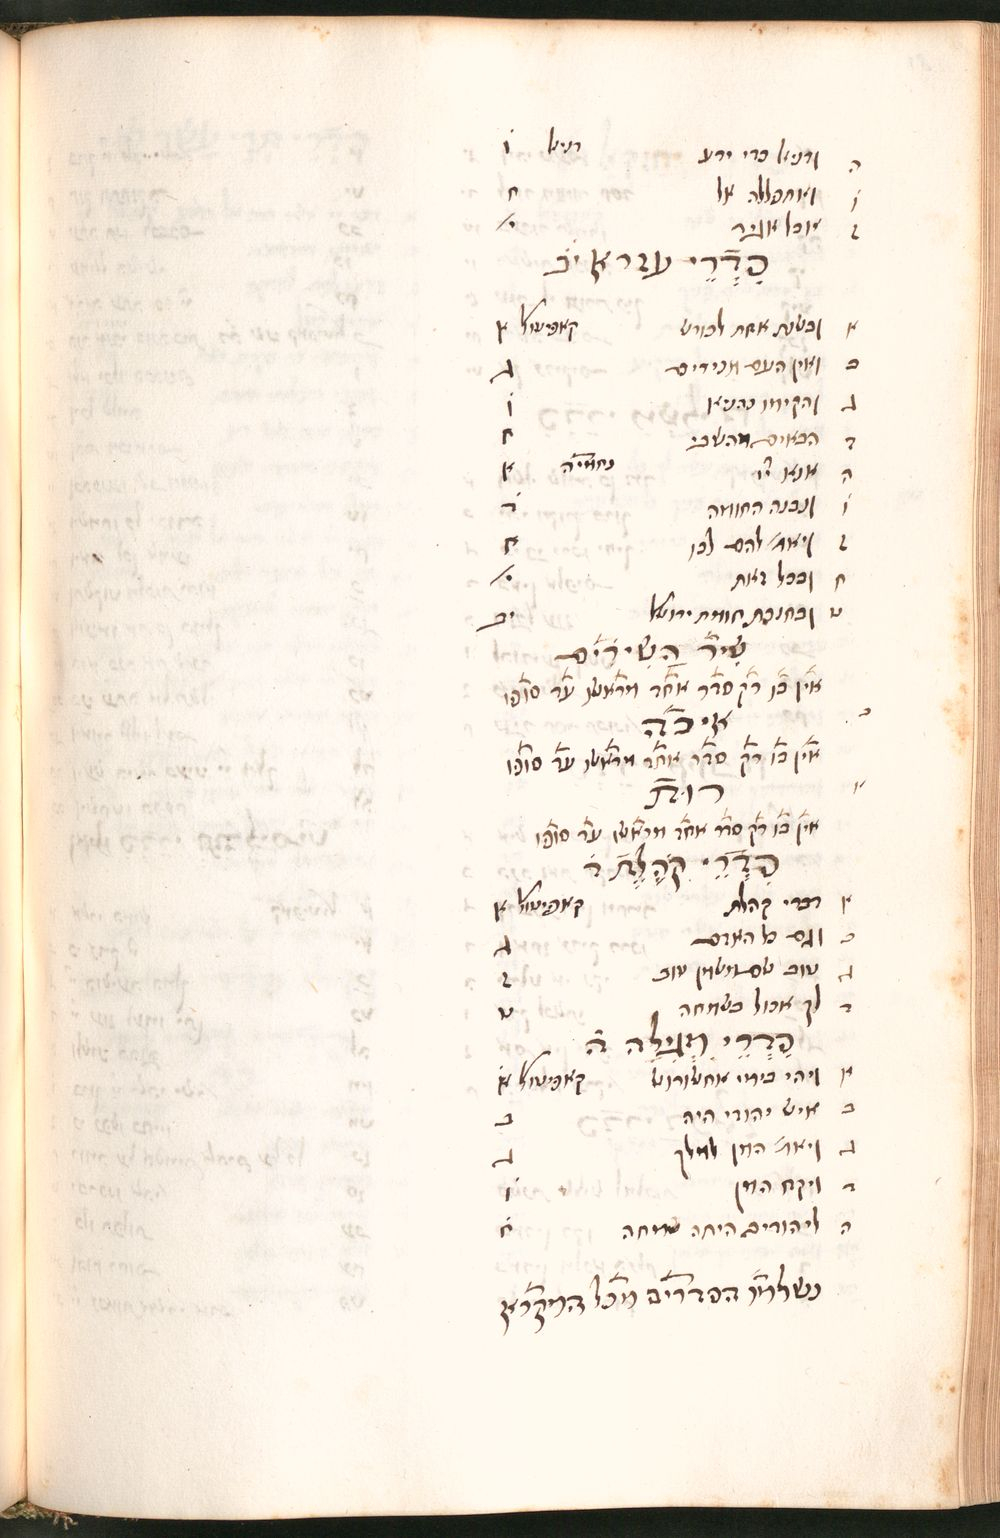 ה ודניאל כדי ידע דניאל ו
ו ואתפללה אל ט
ז יובל אוביר יא
סדרי עזרא י
א ובשנת אחת לכורש קאפיטול א
ב ואין העם מכירים ג
ג והקימו כהניא ו
ד הבאים מהשבי ח
ה אנא יי נחמיה א
ו ונבנה החומה ד
ז ויאמר להם לכו ח
ח ובכל זאת י
ט ובחנכת חומת ירושל יב
שיר השירים
אין בו רק סדר אחד מראשו עד סופו
איכה
אין בו רק סדר אחד מראשו עד סופו
רות
אין בו רק סדר אחד מראשו עד סופו
סדרי קהלת ד
א דברי קהלת קאפיטול א
ב וגם כל האדם ג
ג טוב שם משמן טוב ז
ד לך אכול בשמחה ט
סדרי מגילה ה
א ויהי בימי אחשורוש קאפיטול א
ב איש יהודי היה ב
ג ויאמר המן למלך ג
ד ויקח המן ו
ה ליהודים היתה שמחה ח
נשלמו הסדרים מכל המקרא